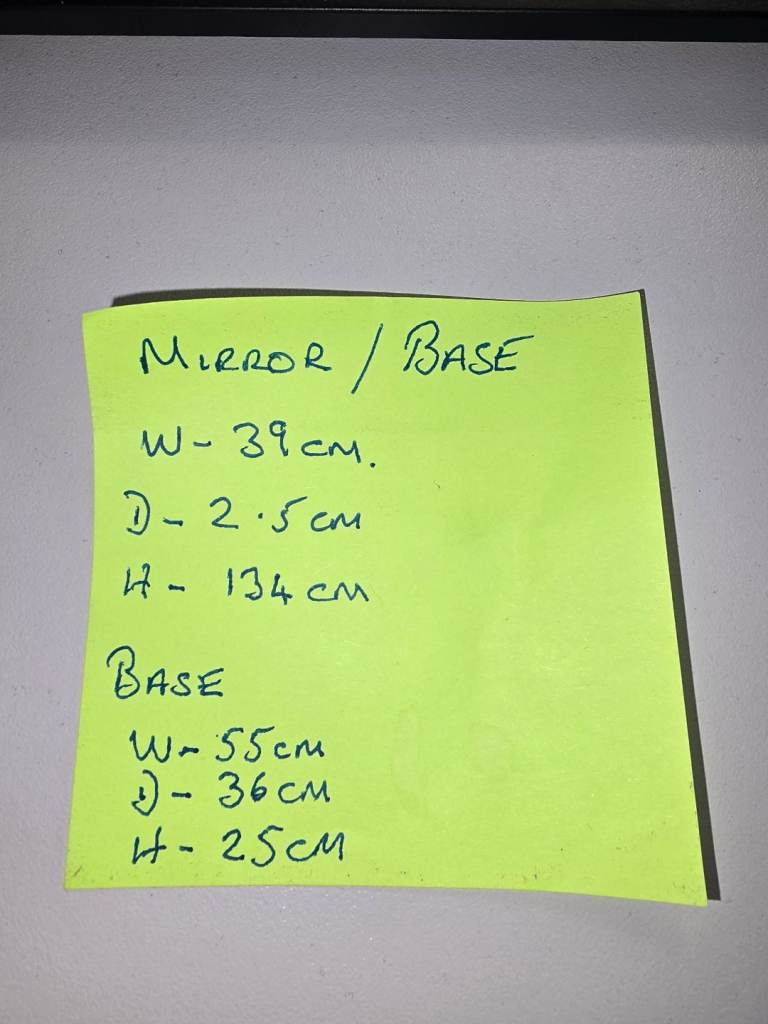 MIRROR / BASE
W - 39 cm.
D - 2.5 cm
H - 134 cm
BASE
W - 55 cm
D - 36 cm
H - 25 cm